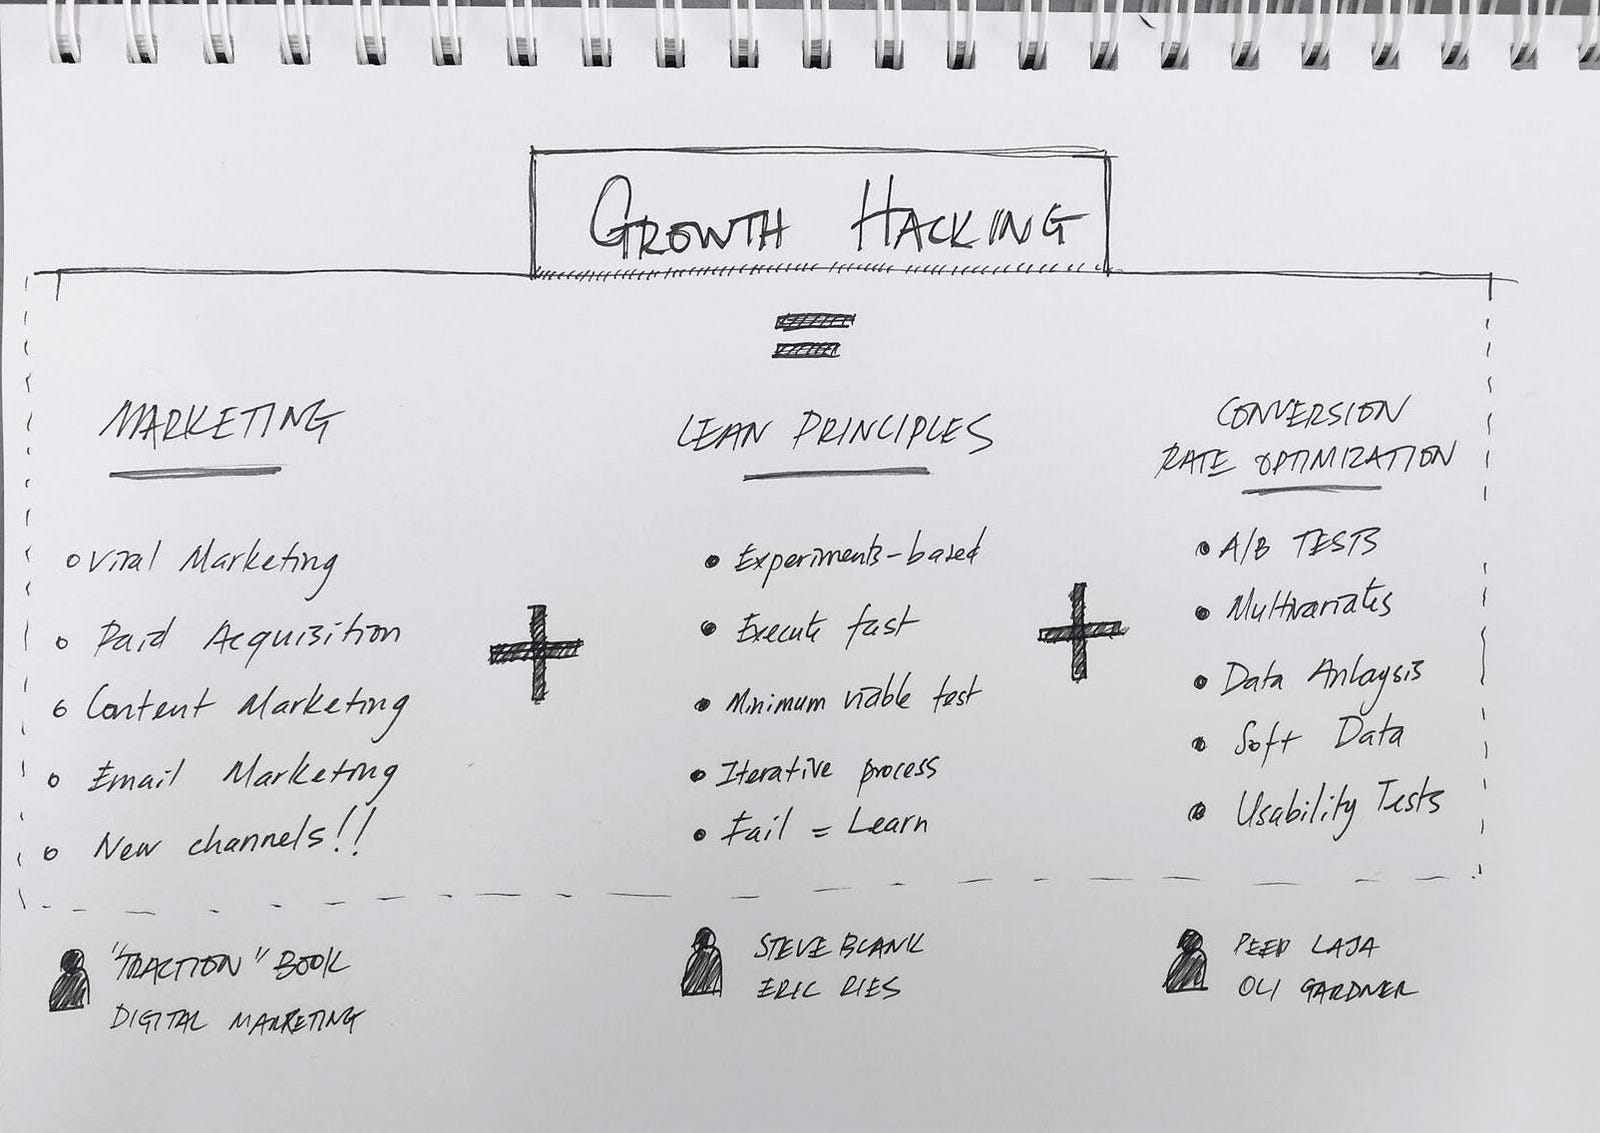 GROWTH HACKING
=
MARKETING
o Viral Marketing
o Paid Acquisition
o Content Marketing
o Email Marketing
o New channels!!
+
LEAN PRINCIPLES
• Experiments-based
• Execute fast
• Minimum viable test
• Iterative process
• Fail = Learn
+
CONVERSION
RATE OPTIMIZATION
• A/B TESTS
• Multivariates
• Data Anlaysis
• Soft Data
• Usability Tests
"TRACTION" BOOK
DIGITAL MARKETING
STEVE BLANK
ERIC RIES
PEEP LAJA
OLI GARDNER